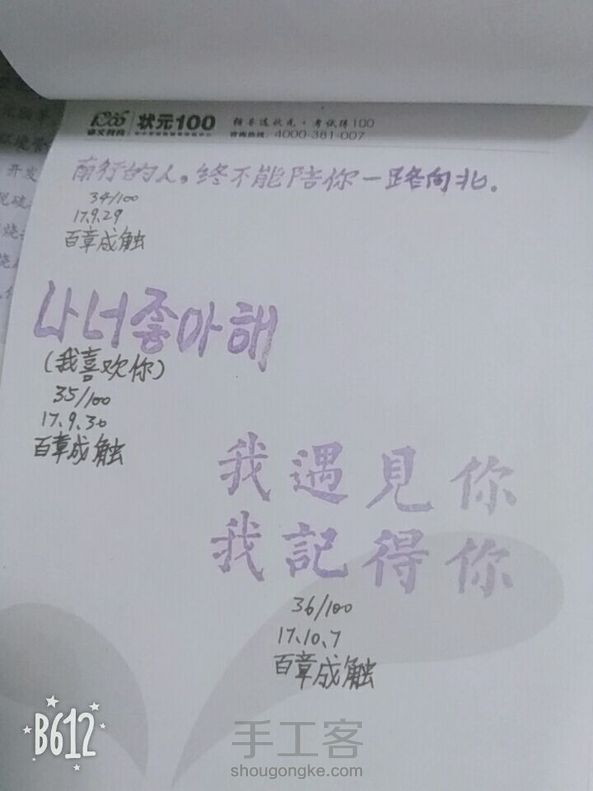 状元100 指导造状元·考试得100
咨询热线：4000-381-007
南行的人。终不能陪你一路向北。
34/100
17.9.29
百章成触
나너좋아해
(我喜欢你)
35/100
17.9.30
百章成触
我遇見你
我記得你
36/100
17.10.7
百章成触
B612
手工客
shougongke.com